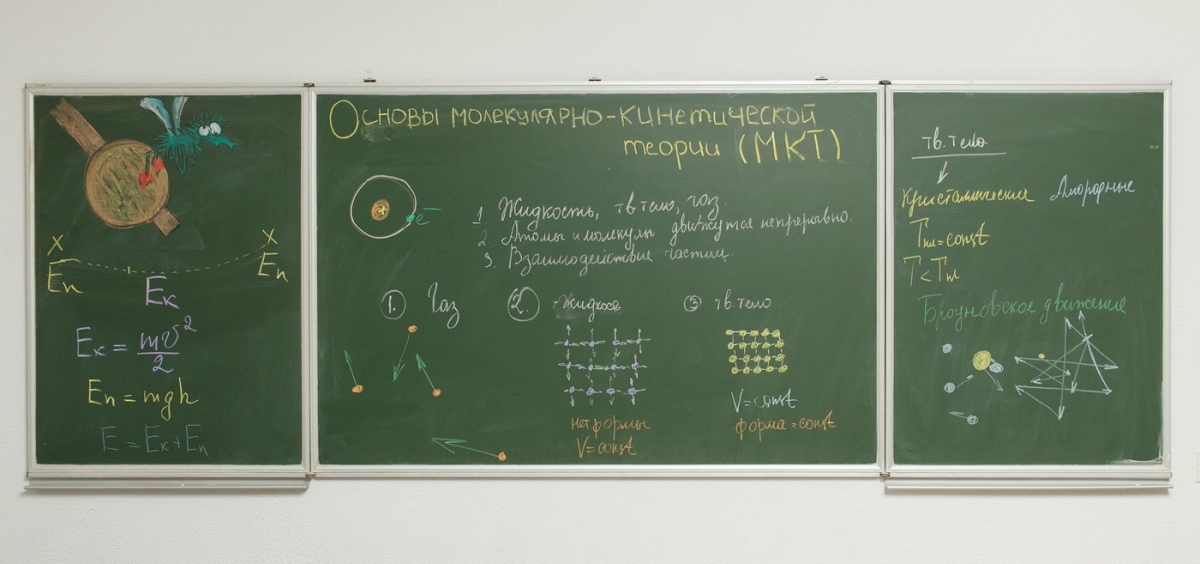 X X
Eп Eп
Eк
Eк = mv²/2
Eп = mgh
E = Eк + Eп
Основы молекулярно-кинетической
теории (МКТ)
e⁻
1. Жидкость, тв тело, газ
2. Атомы и молекулы движутся непрерывно.
3. Взаимодействие частиц.
1. Газ
2. Жидкость
3 тв. тело
нет формы
V = const
V = const
форма = const
тв. тело
кристаллические Аморфные
Tпл = const
T < Tпл
Броуновское движение